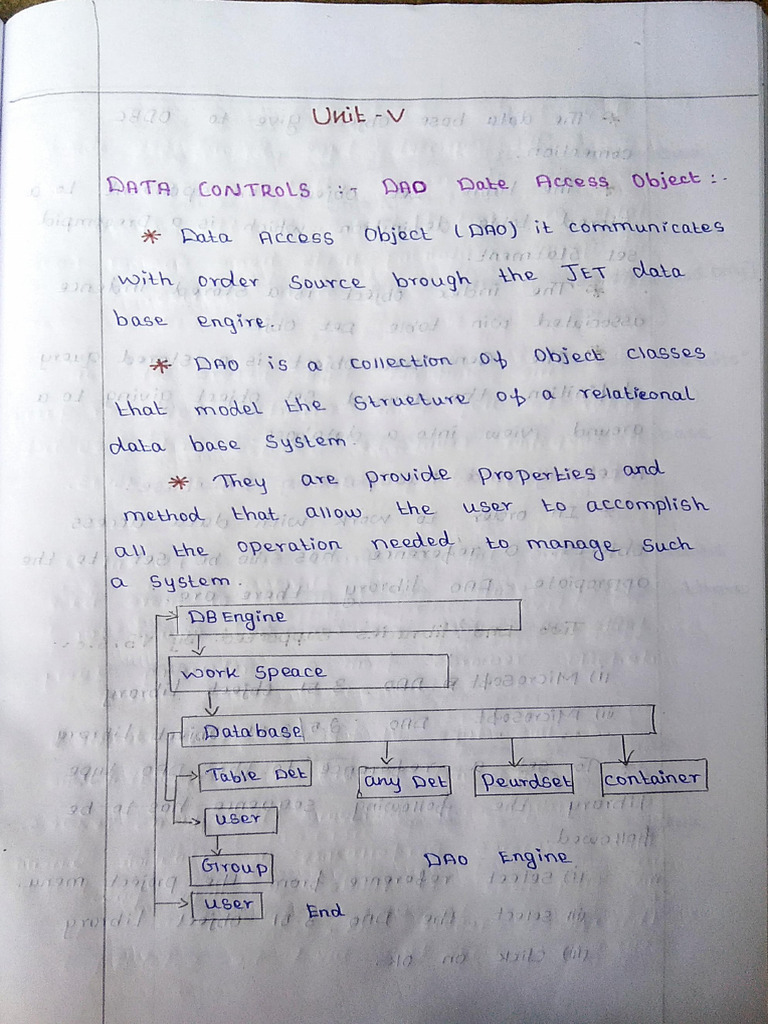 Unit - V
DATA CONTROLS :- DAO Date Access Object :-
* Data Access Object (DAO) it communicates
with order source brough the JET data
base engire.
* DAO is a collection of object classes
that model the structure of a relational
data base system.
* They are provide properties and
method that allow the user to accomplish
all the operation needed to manage such
a system.
DB Engine
Work Speace
Database
Table Det
any Det
Peurdset
container
user
Group
DAO Engine
user
End